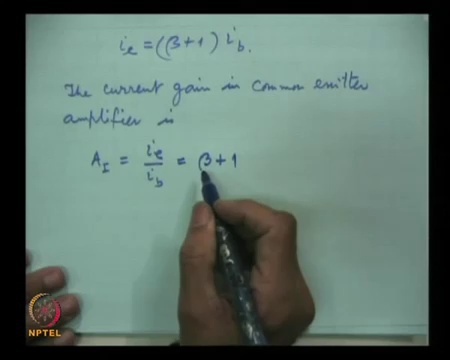 ie = (β+1) ib.
The current gain in common emitter
amplifier is
AI = ie/ib = β+1
NPTEL